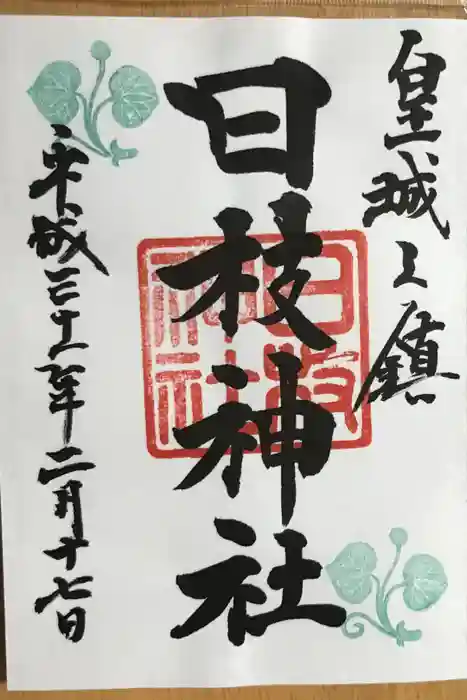 皇城之鎮
日枝神社
平成三十一年二月十七日
日枝
神社